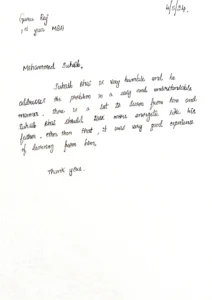 4/5/24.
Guru Raj
1st year MBA
Mohammed Suhaib,
Suhaib bhai is very humble and he
addresses the problem in a very and understandable
manner. there is a lot to learn from him and
Suhaib bhai should look more energetic like his
father. other than that, it was very good experience
of learning from him.
Thank you.